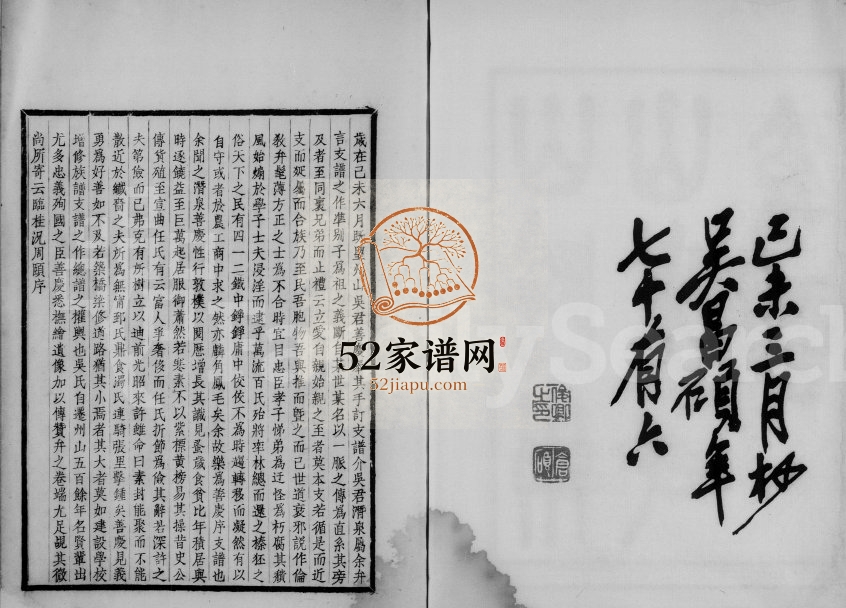 己未三月杪
吳昌碩年
七十有六
歲在己未六月既望州山吳君善慶其手訂支譜介吳君潛泉屬余弁
言支譜之作準別子為祖之義斷自某世某名以一脈之傳為直系其旁
及者至同裏兄弟而止禮云立愛自親始親之至者莫本支若循是而近
支而疑屬而合族乃至民吾胞物吾與推而暨之而已世道衰邪說作倫
教弁髦薄方正之士為不合時宜目忠臣孝子悌弟為迂怪為朽腐其穨
風始煽於學子士夫浸淫而逮乎萬流百氏殆將率林總而還之榛狉之
俗天下之民有四一二鐵中錚錚庸中佼佼不為時趨轉移而凝然有以
自守或者於農工商中求之然亦麟角鳳毛矣余故樂為善慶序支譜也
余聞之潛泉善慶性行敦樸以閱歷增長其識見蚤歲食貧比年積居與
時逐饒益至巨萬起居服御蕭然若寒素不以紫標黃榜易其操昔史公
傳貨殖至宣曲任氏有云富人爭奢侈而任氏折節為儉其辭若深許之
夫第儉而已弗克有所樹立以迪前光昭來許雖命曰素封能聚而不能
散近於纖嗇之夫所為無甯郅氏鼎食濁氏連騎張里擊鍾矣善慶見義
勇為好善如不及若築橋梁修道路猶其小焉者其大者莫如建設學校
增修族譜支譜之作總譜之權輿也吳氏自遷州山五百餘年名賢輩出
尤多忠義殉國之臣善慶悉撫繪遺像加以傳贊弁之卷端尤足覘其微
尚所寄云臨桂況周頤序
52家譜网
52jiapu.com